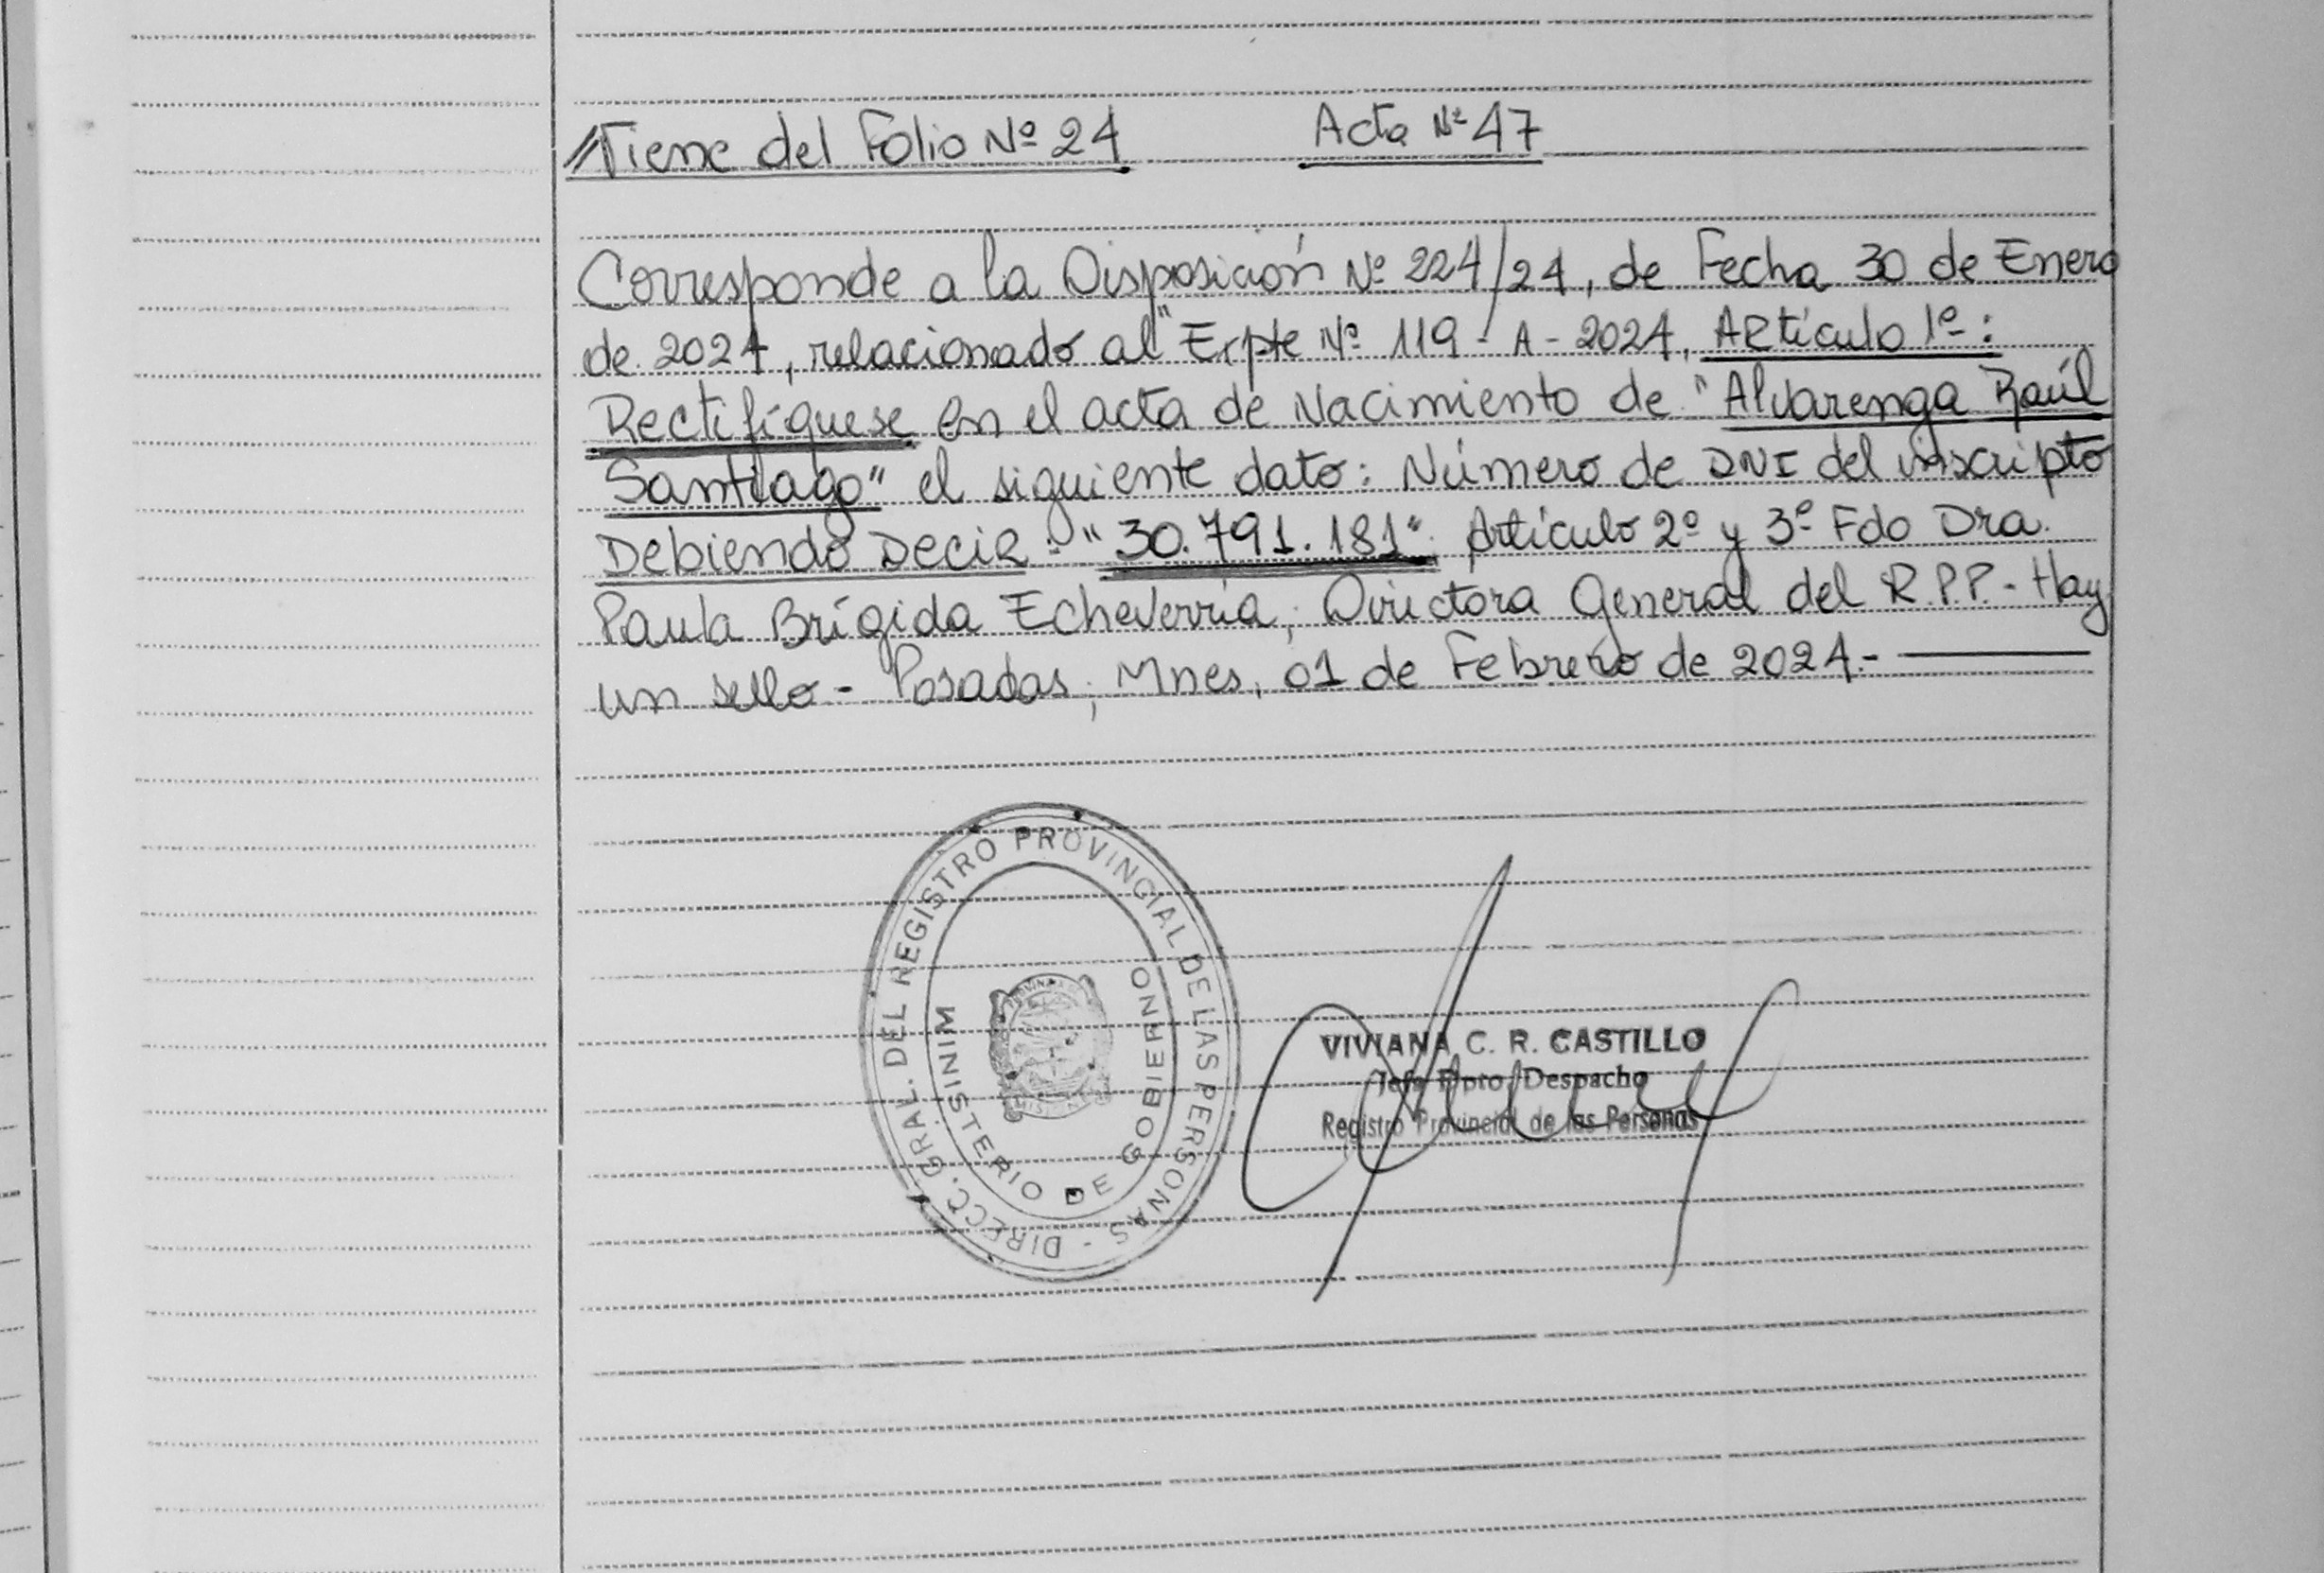 //Viene del Folio Nº 24 Acta Nº 47
Corresponde a la Disposición Nº 224/24, de Fecha 30 de Enero
de 2024, relacionado al "Expte Nº 119 - A - 2024, ARtículo 1º:
Rectifíquese en el acta de Nacimiento de "Alvarenga Raúl
Santiago" el siguiente dato: Número de DNI del inscripto
Debiendo Decir: "30.791.181". Artículo 2º y 3º Fdo Dra.
Paula Brígida Echeverría, Directora General del R.P.P. - Hay
un sello - Posadas, Mnes, 01 de Febrero de 2024.-
DIRECC. GRAL. DEL REGISTRO PROVINCIAL DE LAS PERSONAS -
MINISTERIO DE GOBIERNO
VIVIANA C. R. CASTILLO
Jefa Dpto. Despacho
Registro Provincial de las Personas